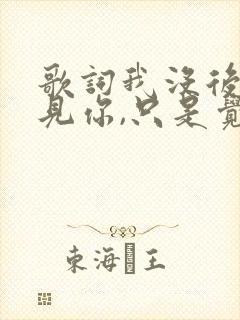 歌詞我沒後
見你,只是覺
東海王